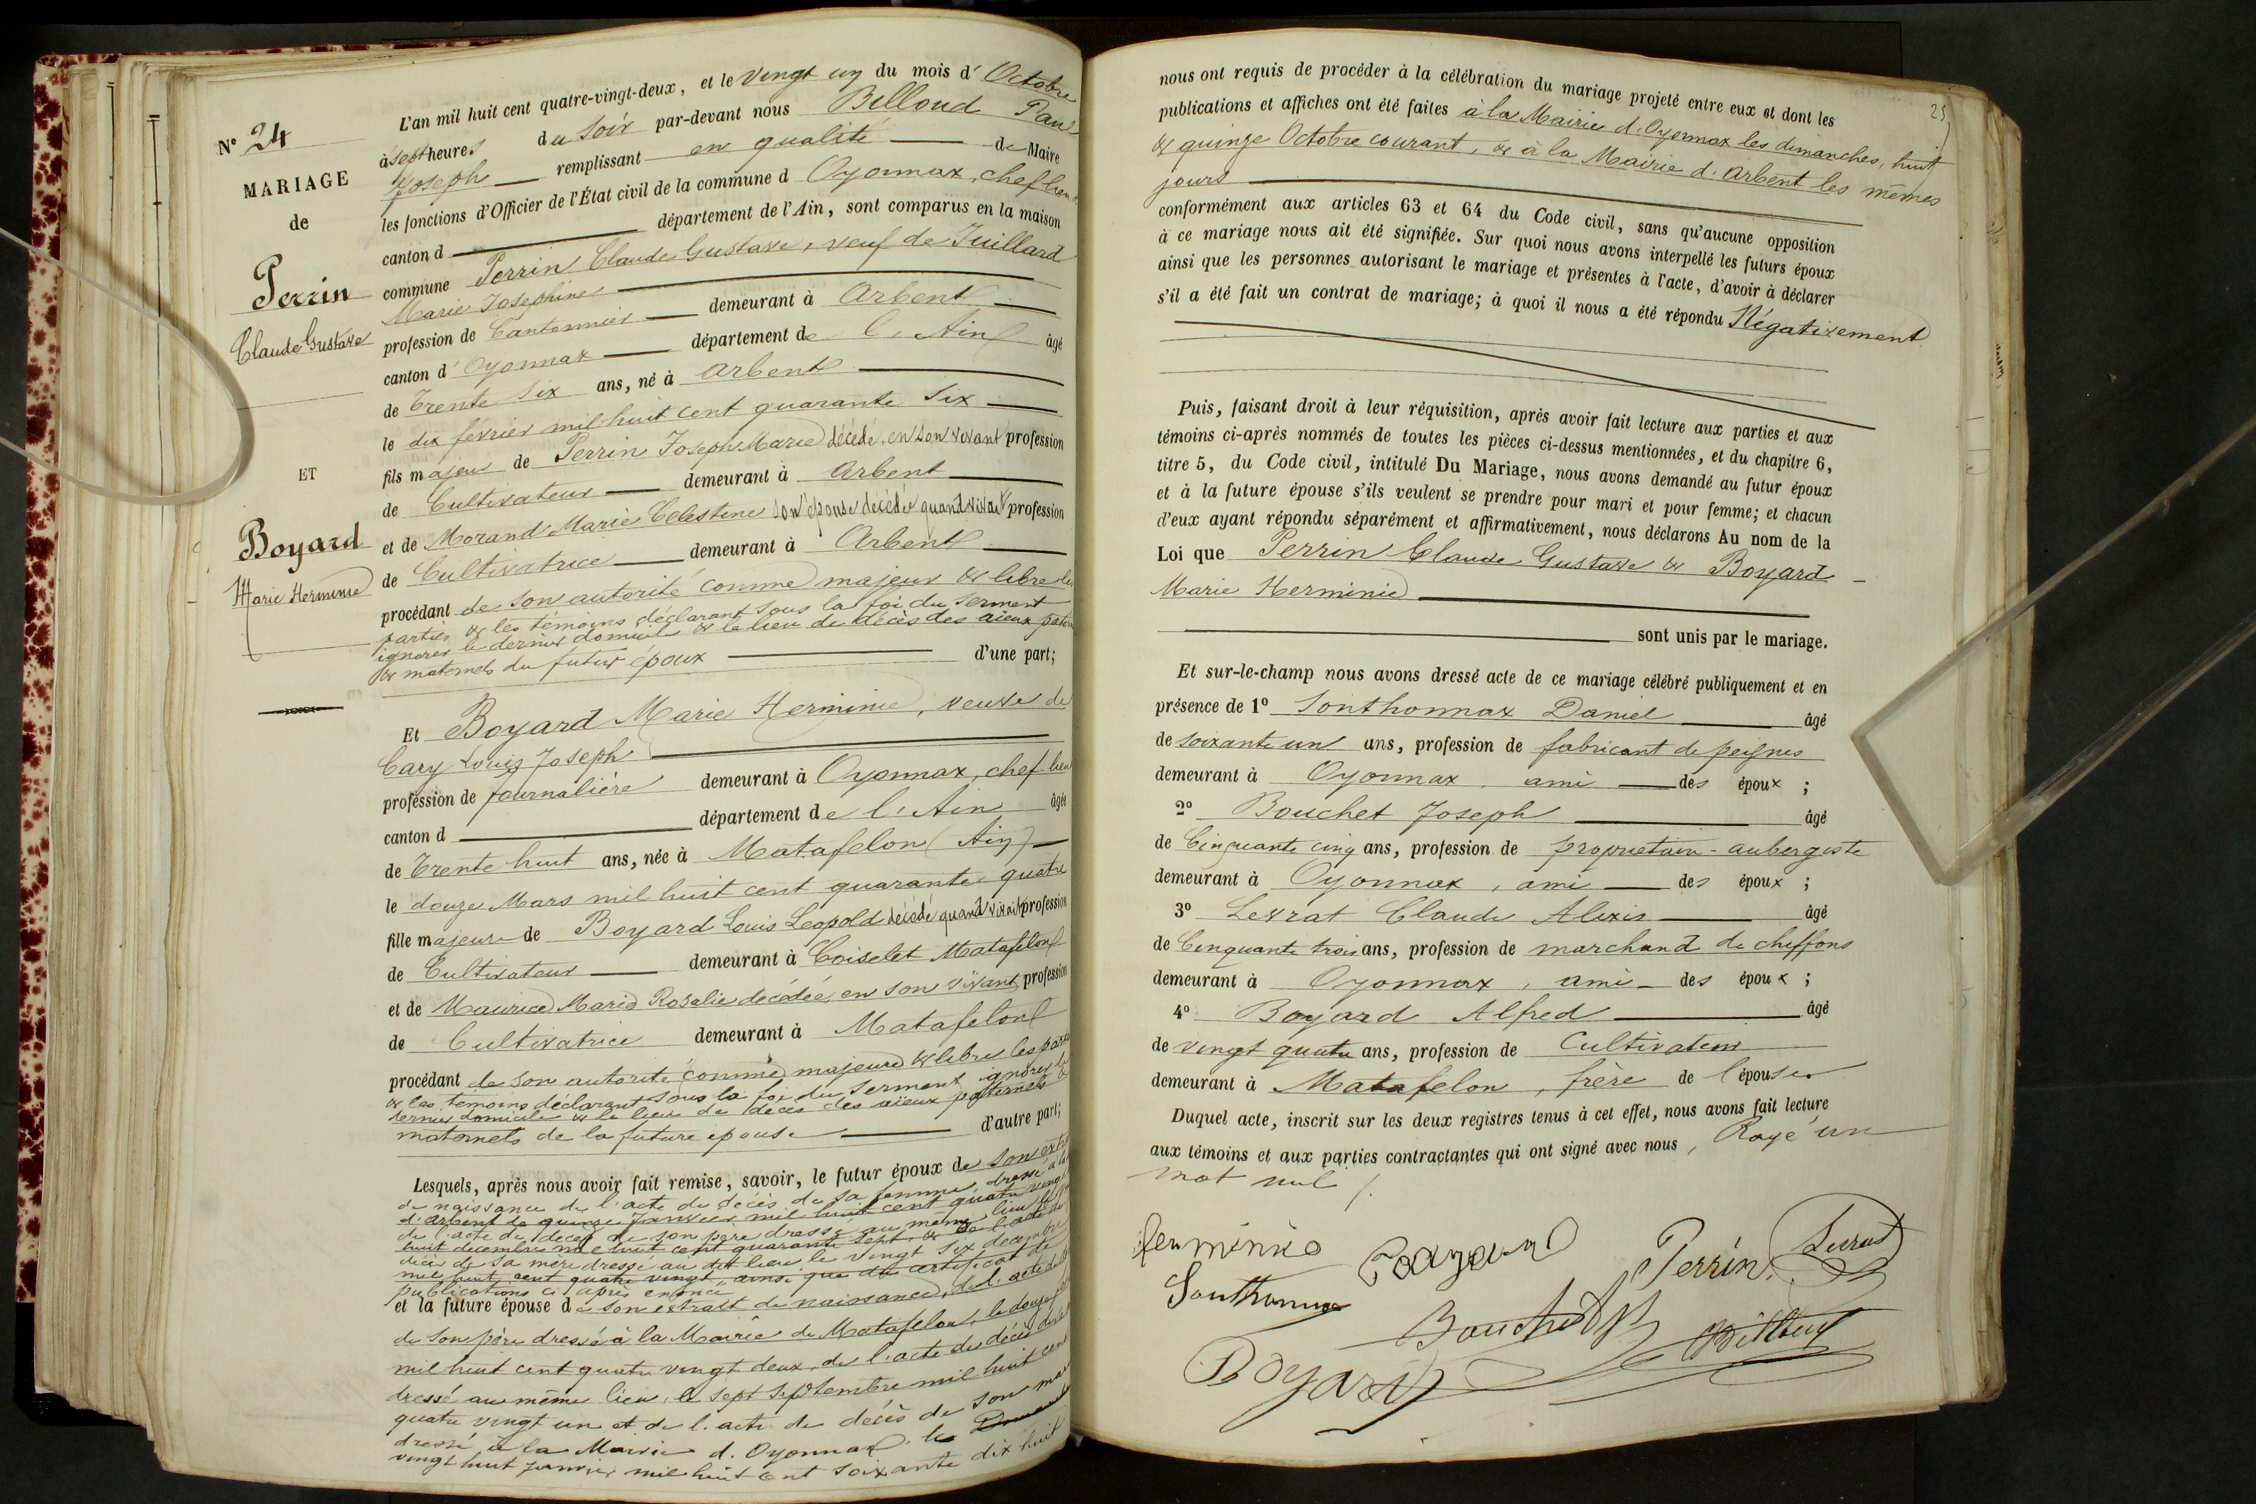 N° 24
MARIAGE
de
Perrin
Claude Gustave
ET
Boyard
Marie Herminie
L'an mil huit cent quatre-vingt-deux, et le vingt un du mois d'Octobre
à sept heures du soir par-devant nous Billoud Paul
Joseph remplissant en qualité de Maire
les fonctions d'Officier de l'État civil de la commune d Oyonnax, chef lieu
canton d département de l'Ain, sont comparus en la maison
commune Perrin Claude Gustave, veuf de Juillard
Marie Josephine
profession de Cantonnier demeurant à Arbent
canton d' Oyonnax département de l'Ain âgé
de Trente six ans, né à Arbent
le dix février mil huit cent quarante six
fils majeur de Perrin Joseph Marie décédé, en son vivant profession
de Cultivateur demeurant à Arbent
et de Morand Marie Celestine son épouse décédée quand vivait profession
de Cultivatrice demeurant à Arbent
procédant de son autorité comme majeur & libre les
parties & les témoins déclarant sous la foi du serment
ignorer le dernier domicile & le lieu de décès des aïeux
& maternels du futur époux d'une part;
Et Boyard Marie Herminie, veuve de
Cary Louis Joseph
profession de journalière demeurant à Oyonnax, chef lieu
canton d département de l'Ain âgée
de Trente huit ans, née à Matafelon (Ain)
le douze Mars mil huit cent quarante quatre
fille majeure de Boyard Louis Leopold décédé quand vivait profession
de Cultivateur demeurant à Coiselet Matafelon
et de Maurice Marie Rosalie décédée, en son vivant, profession
de Cultivatrice demeurant à Matafelon
procédant de son autorité comme majeure & libre les parties
& les témoins déclarant sous la foi du serment ignorer le
dernier domicile & le lieu de décès des aïeux paternels &
maternels de la future épouse d'autre part;
Lesquels, après nous avoir fait remise, savoir, le futur époux de son
de naissance de l'acte de décès de sa femme, dressé à
d'Arbent le quinze Janvier mil huit cent quatre vingt
de l'acte de décès de son père dressé au même lieu le
huit décembre mil huit cent quarante sept, & de l'acte de
décès de sa mère dressé au dit lieu le vingt six décembre
mil huit cent quatre vingt, ainsi que du certificat de
publications ci après énoncé
et la future épouse de son extrait de naissance, de l'acte de
de son père dressé à la Mairie de Matafelon, le douze
mil huit cent quatre vingt deux, de l'acte de décès de
dressé au même lieu, le sept septembre mil huit cent
quatre vingt un et de l'acte de décès de son mari
dressé à la Mairie d'Oyonnax le
vingt huit janvier mil huit cent soixante dix huit
25
nous ont requis de procéder à la célébration du mariage projeté entre eux et dont les
publications et affiches ont été faites à la Mairie d'Oyonnax les dimanches, huit
& quinze Octobre courant, & à la Mairie d'Arbent les mêmes
jours
conformément aux articles 63 et 64 du Code civil, sans qu'aucune opposition
à ce mariage nous ait été signifiée. Sur quoi nous avons interpellé les futurs époux
ainsi que les personnes autorisant le mariage et présentes à l'acte, d'avoir à déclarer
s'il a été fait un contrat de mariage; à quoi il nous a été répondu Négativement
Puis, faisant droit à leur réquisition, après avoir fait lecture aux parties et aux
témoins ci-après nommés de toutes les pièces ci-dessus mentionnées, et du chapitre 6,
titre 5, du Code civil, intitulé Du Mariage, nous avons demandé au futur époux
et à la future épouse s'ils veulent se prendre pour mari et pour femme; et chacun
d'eux ayant répondu séparément et affirmativement, nous déclarons Au nom de la
Loi que Perrin Claude Gustave & Boyard
Marie Herminie
sont unis par le mariage.
Et sur-le-champ nous avons dressé acte de ce mariage célébré publiquement et en
présence de 1° Sonthonnax Daniel âgé
de soixante un ans, profession de fabricant de peignes
demeurant à Oyonnax, ami des époux ;
2° Bouchet Joseph âgé
de Cinquante cinq ans, profession de propriétaire-aubergiste
demeurant à Oyonnax, ami des époux ;
3° Levrat Claude Alexis âgé
de Cinquante trois ans, profession de marchand de chiffons
demeurant à Oyonnax, ami des époux ;
4° Boyard Alfred âgé
de vingt quatre ans, profession de Cultivateur
demeurant à Matafelon, frère de l'épouse.
Duquel acte, inscrit sur les deux registres tenus à cet effet, nous avons fait lecture
aux témoins et aux parties contractantes qui ont signé avec nous, Rayé un
mot nul
herminie Boyard Perrin Levrat
Sonthonnax
Bouchet Billoud
Boyard